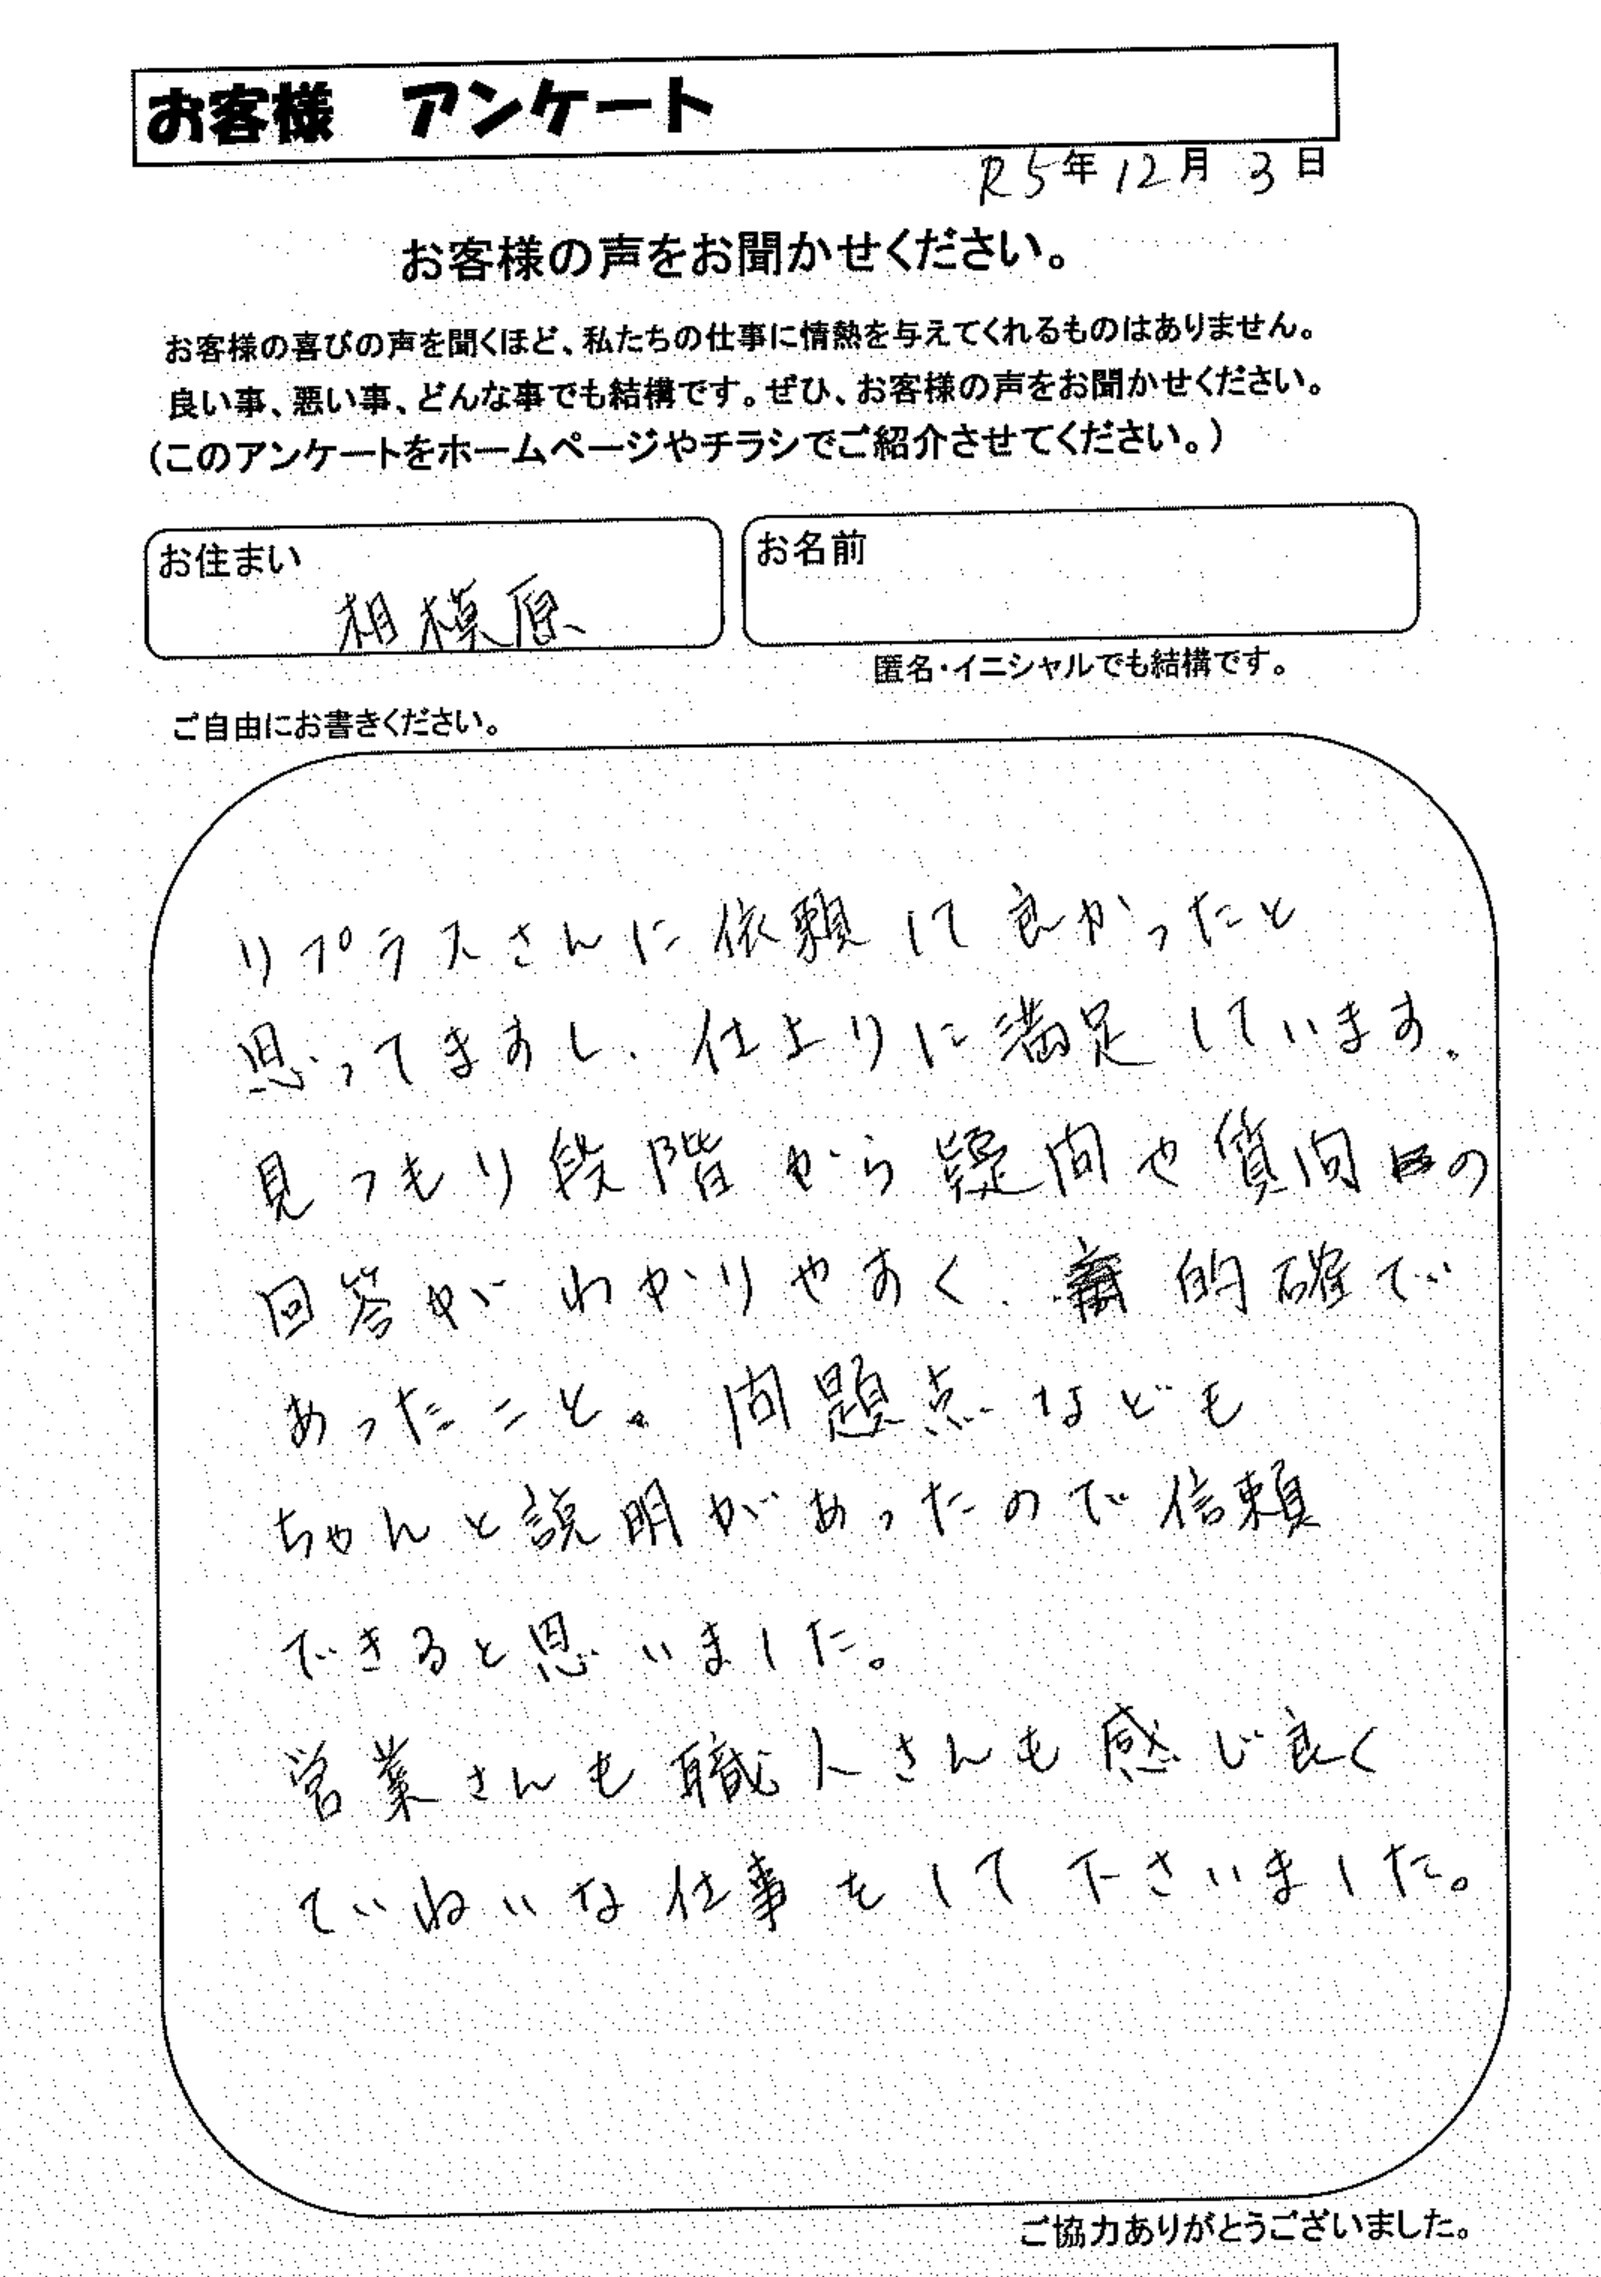 お客様　アンケート
R5年12月3日
お客様の声をお聞かせください。
お客様の喜びの声を聞くほど、私たちの仕事に情熱を与えてくれるものはありません。
良い事、悪い事、どんな事でも結構です。ぜひ、お客様の声をお聞かせください。
（このアンケートをホームページやチラシでご紹介させてください。）
お住まい
相模原
お名前
匿名・イニシャルでも結構です。
ご自由にお書きください。
リプラスさんに依頼して良かったと
思ってますし、仕上りに満足しています。
見つもり段階から疑問や質問の
回答がわかりやすく、的確で
あったこと。問題点なども
ちゃんと説明があったので信頼
できると思いました。
営業さんも職人さんも感じ良く
ていねいな仕事をして下さいました。
ご協力ありがとうございました。